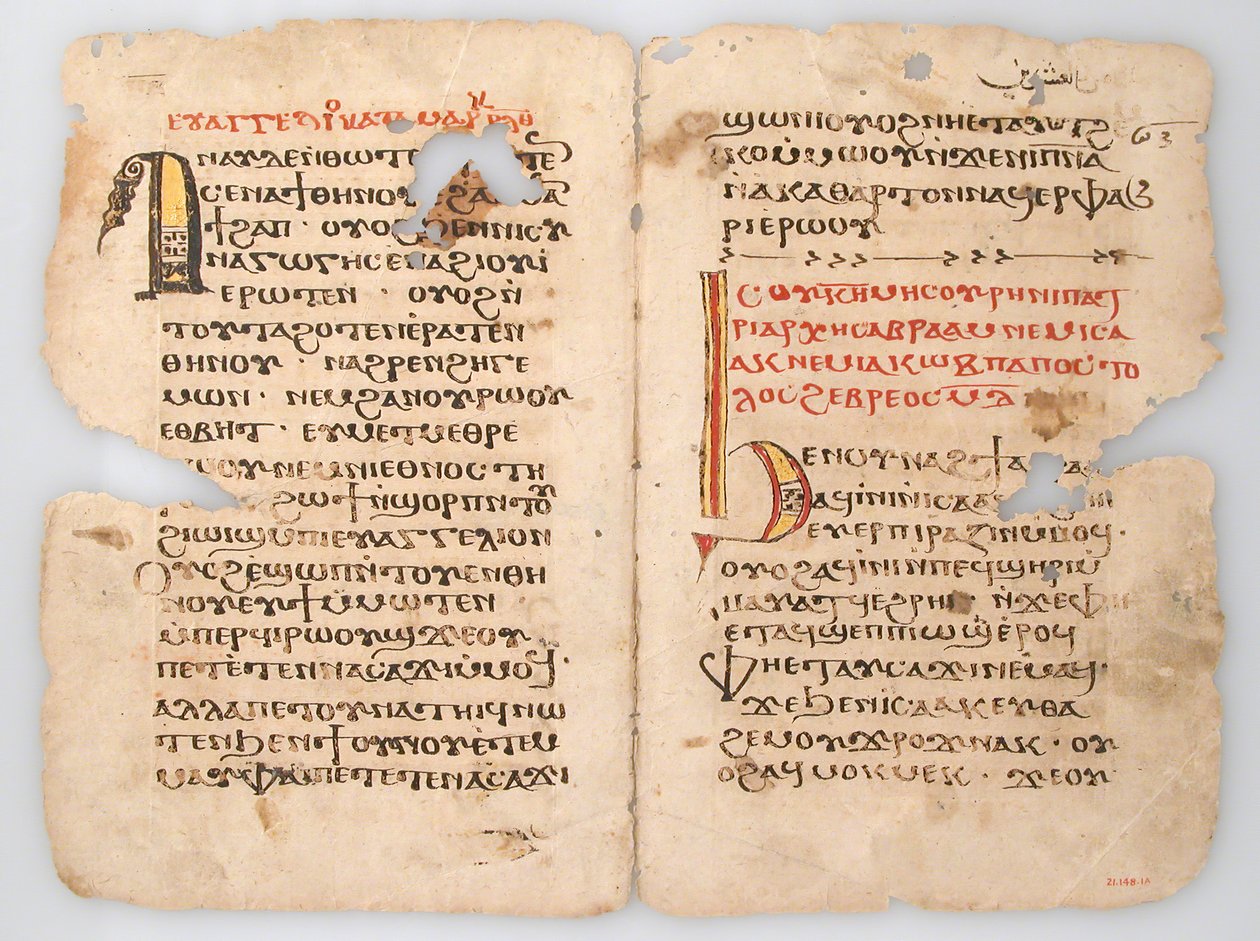 ⲉⲩⲁⲅⲅⲉⲗⲓⲟ ⲕⲁⲧⲁ ⲙⲁⲣ
ⲁⲛⲁⲩ ⲇⲉ ⲛ̇ⲑⲱⲧⲉ
ⲥⲉⲛⲁϯⲑⲏⲛⲟⲩ
ϯϩⲁⲡ · ⲟⲩⲟϩ ϧⲉⲛⲛⲓⲥⲩ
ⲛⲁⲅⲱⲅⲏ ⲥⲉⲛⲁϩⲓⲟⲩⲓ̇
ⲉⲣⲱⲧⲉⲛ · ⲟⲩⲟϩ ⲛ̇
ⲧⲟⲩⲧⲁϩⲟⲧⲉⲛ ⲉ̇ⲣⲁⲧⲉⲛ
ⲑⲏⲛⲟⲩ · ⲛⲁϩⲣⲉⲛ ϩⲏⲅⲉ
ⲙⲱⲛ · ⲛⲉⲙ ϩⲁⲛⲟⲩⲣⲱⲟⲩ
ⲉⲑⲃⲏⲧ · ⲉⲩⲙⲉⲧⲙⲉⲑⲣⲉ
ⲱⲟⲩ ⲛⲉⲙ ⲛⲓⲉⲑⲛⲟⲥ ⲧⲏ
ϩⲱϯ ⲛ̇ϣⲟⲣⲡ ⲛ̇ⲧⲟⲩ
ϩⲓⲱⲓϣ ⲙ̇ⲡⲓⲉⲩⲁⲅⲅⲉⲗⲓⲟⲛ
ⲟⲩⲟϩ ⲉϣⲱⲡ ⲛ̇ⲧⲟⲩⲉⲛ ⲑⲏ
ⲛⲟⲩ ⲉⲩϯ ⲙ̇ⲙⲱⲧⲉⲛ
ⲙ̇ⲡⲉⲣϥⲓⲣⲱⲟⲩϣ ϫⲉ ⲟⲩ
ⲡⲉⲧⲉ̇ⲧⲉⲛⲛⲁⲥⲁϫⲓ ⲙ̇ⲙⲟϥ ·
ⲁⲗⲗⲁ ⲡⲉⲧⲟⲩⲛⲁⲧⲏⲓϥ ⲛⲱ
ⲧⲉⲛ ϧⲉⲛ ϯⲟⲩⲛⲟⲩ ⲉ̇ⲧⲉⲙ
ⲙⲁⲩ ⲫⲁⲓ ⲡⲉⲧⲉⲧⲉⲛⲁⲥⲁϫⲓ
ϣⲱⲛⲓ ⲟⲩⲟϩ ⲛⲏⲉⲧⲁⲩⲧϩⲉ
ⲙ̇ⲕⲟ ⲙ̇ⲙⲱⲟⲩ ⲛ̇ϫⲉⲛⲓⲡ̅ⲛ̅ⲁ̅
ⲛ̇ⲁⲕⲁⲑⲁⲣⲧⲟⲛ ⲛⲁϥⲉⲣⲫⲁϧ
ⲣⲓ ⲉ̇ⲣⲱⲟⲩ
ⲥⲟⲩ ⲙⲏⲥⲟⲩⲣⲏ ⲛⲓⲡⲁⲧ
ⲣⲓⲁⲣⲭⲏⲥ ⲁⲃⲣⲁⲁⲙ ⲛⲉⲙ ⲓⲥⲁ
ⲁⲕ ⲛⲉⲙ ⲓⲁⲕⲱⲃ ⲡⲁⲡⲟⲥⲧⲟ
ⲗⲟⲥ ϩⲉⲃⲣⲉⲟⲥ
ϧⲉⲛ ⲟⲩⲛⲁϩϯ ⲁ
ⲁϥⲓ̇ⲛⲓ ⲛ̇ⲓⲥⲁⲁⲕ
ⲉⲩⲉⲣⲡⲓⲣⲁⲍⲓⲛ ⲙ̇ⲙⲟϥ ·
ⲟⲩⲟϩ ⲁϥⲓ̇ⲛⲓ ⲙ̇ⲡⲉϥϣⲏⲣⲓ ⲙ̇
ⲙⲁⲩⲁⲧϥ ⲉ̇ϩⲣⲏⲓ ⲛ̇ϫⲉⲫⲏ
ⲉⲧⲁϥϣⲉⲡ ⲡⲓⲱϣ ⲉ̇ⲣⲟϥ
ⲫⲏⲉⲧⲁⲩⲥⲁϫⲓ ⲛⲉⲙⲁϥ ·
ϫⲉ ϧⲉⲛ ⲓⲥⲁⲁⲕ ⲉⲩⲑⲁ
ϩⲉⲙ ⲟⲩϫⲣⲟϫ ⲛⲁⲕ · ⲟⲩ
ⲟϩ ⲁϥⲙⲟⲕⲙⲉⲕ · ϫⲉ ⲟⲩ
21.148.1A